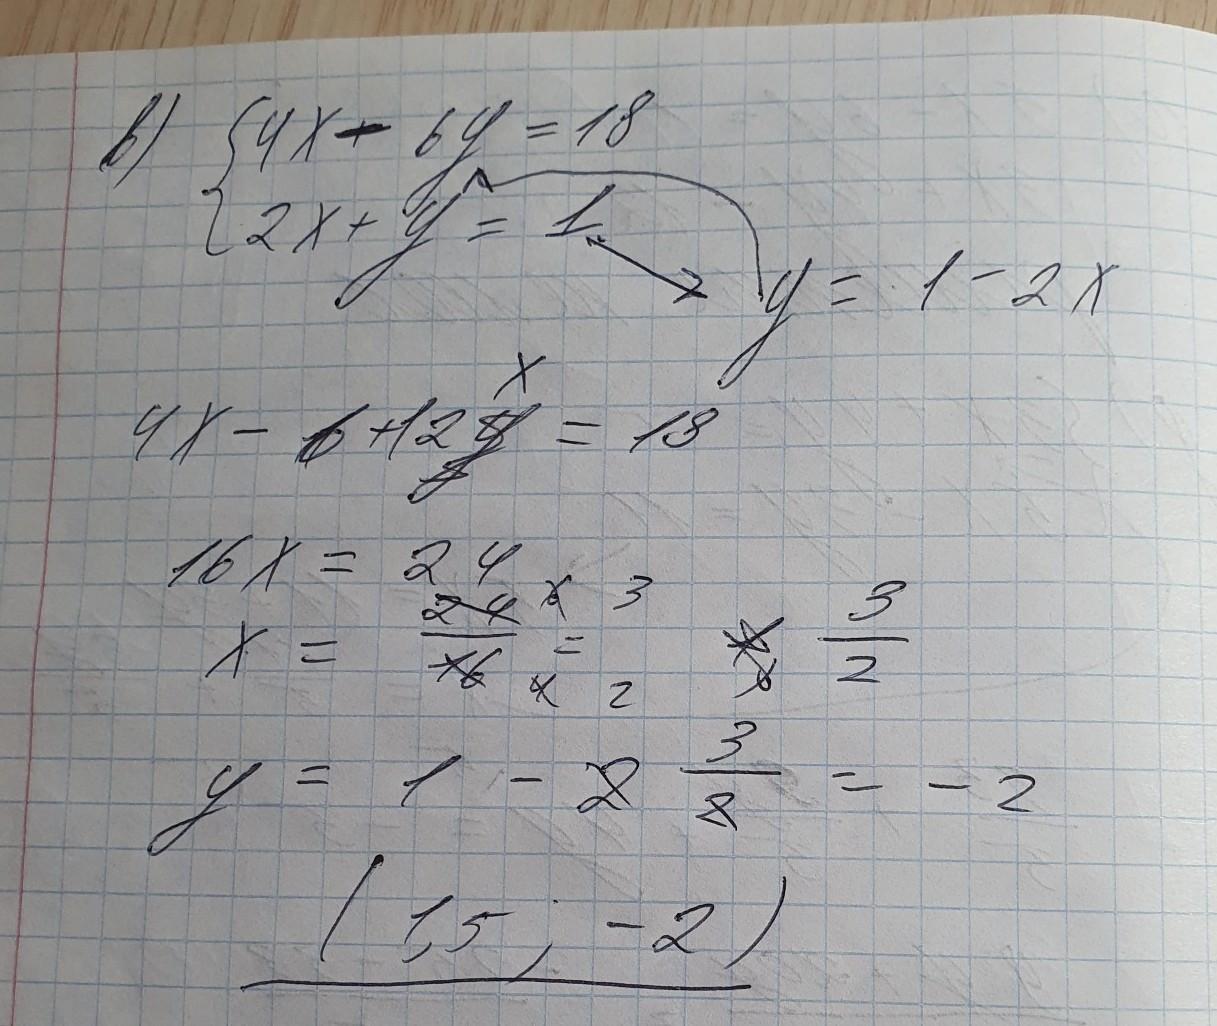 в) { 4x - 6y = 18
2x + y = 1
y = 1 - 2x
x
4x - 6 + 12y = 18
16x = 24
x = 24/16 = 6/4 3/2 3/2
y = 1 - 2 3/2 = -2
(1,5 ; -2)